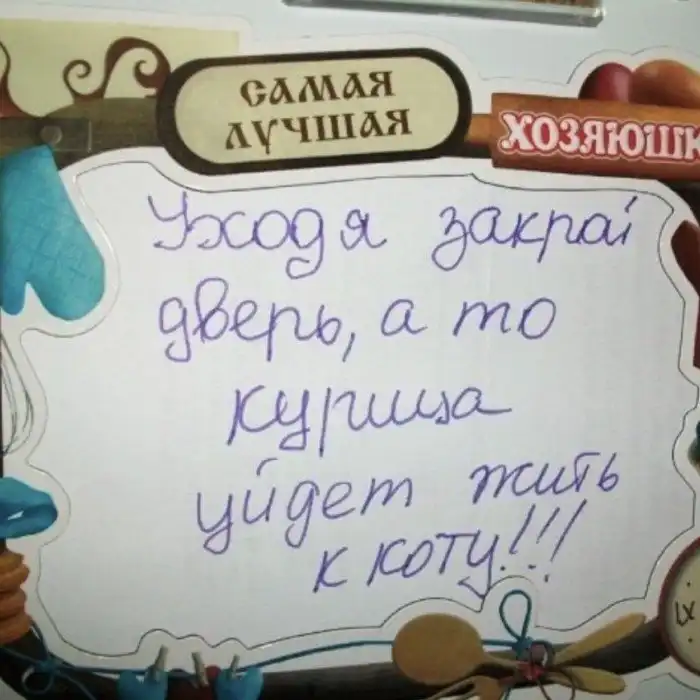 САМАЯ
ЛУЧШАЯ
ХОЗЯЮШК
Уходя закрой
дверь, а то
курица
уйдет жить
к коту!!!
IX